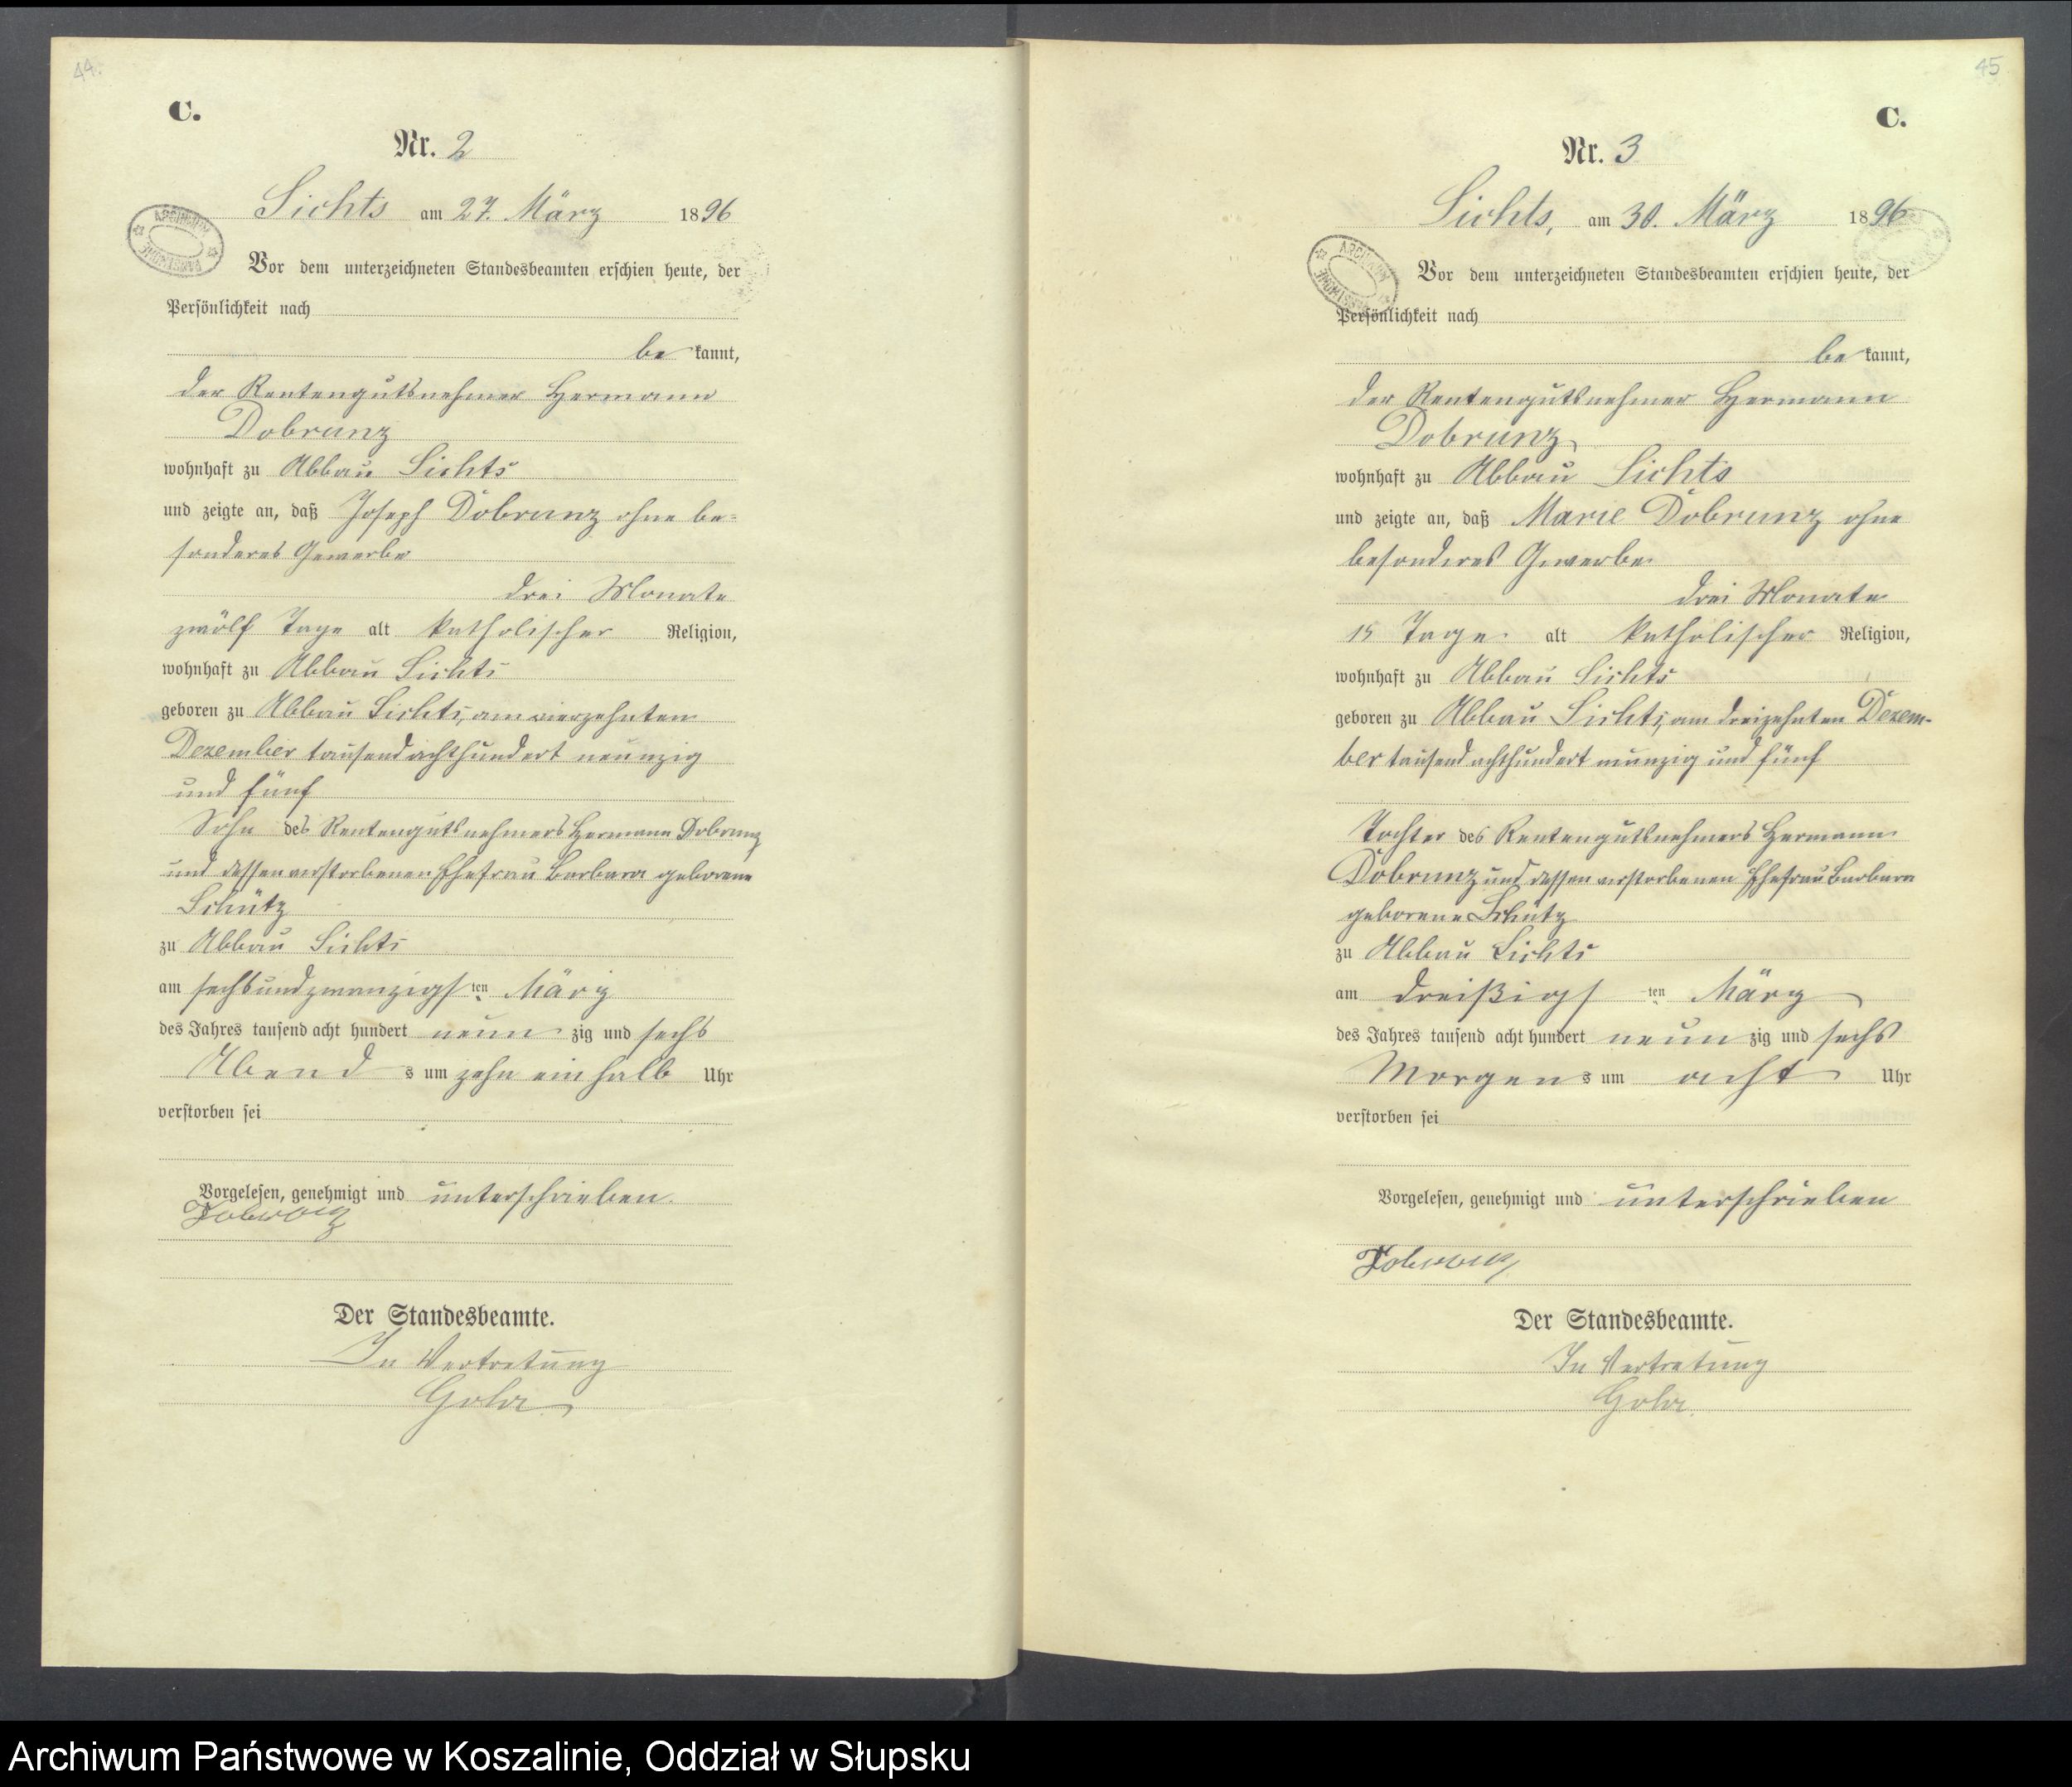 44.
C.
Nr. 2
Lichts am 27. März 1896
ARCHIWUM
Vor dem unterzeichneten Standesbeamten erschien heute, der
Persönlichkeit nach
be kannt,
der Rentengutsnehmer Hermann
Dobrunz
wohnhaft zu Abbau Lichts
und zeigte an, daß Joseph Dobrunz ohne be-
sonderes Gewerbe
drei Monate
zwölf Tage alt katholischer Religion,
wohnhaft zu Abbau Lichts
geboren zu Abbau Lichts, am vierzehnten
Dezember tausend achthundert neunzig
und fünf
Sohn des Rentengutsnehmers Hermann Dobrunz
und dessen verstorbenen Ehefrau Barbara geborene
Schütz
zu Abbau Lichts
am sechsundzwanzigsten März
des Jahres tausend acht hundert neun zig und sechs
Abend s um zehn ein halb Uhr
verstorben sei
Vorgelesen, genehmigt und unterschrieben.
Dobrunz
Der Standesbeamte.
In Vertretung
45
C.
Nr. 3
Lichts, am 30. März 1896
ARCHIWUM
Vor dem unterzeichneten Standesbeamten erschien heute, der
Persönlichkeit nach
be kannt,
der Rentengutsnehmer Hermann
Dobrunz
wohnhaft zu Abbau Lichts
und zeigte an, daß Marie Dobrunz ohne
besonderes Gewerbe
drei Monate
15 Tage alt katholischer Religion,
wohnhaft zu Abbau Lichts
geboren zu Abbau Lichts, am dreizehnten Dezem-
ber tausend achthundert neunzig und fünf
Tochter des Rentengutsnehmers Hermann
Dobrunz und dessen verstorbenen Ehefrau Barbara
geborene Schütz
zu Abbau Lichts
am dreißigsten März
des Jahres tausend acht hundert neun zig und sechs
Morgen s um acht Uhr
verstorben sei
Vorgelesen, genehmigt und unterschrieben
Dobrunz
Der Standesbeamte.
In Vertretung
Archiwum Państwowe w Koszalinie, Oddział w Słupsku